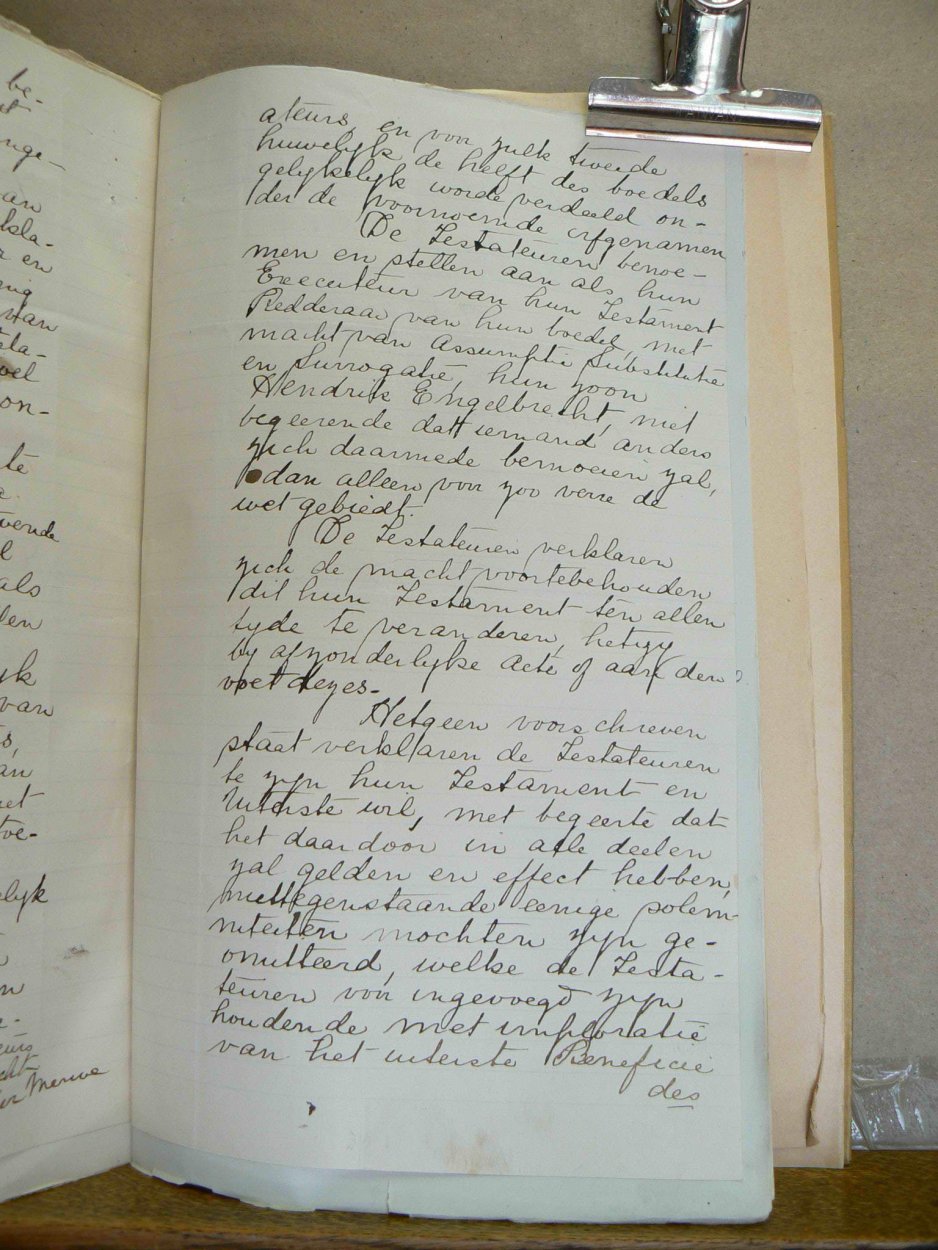 be-
nge-
an
kla-
r en
ing
van
sta-
oel
on-
te
a.
vende
l
als
len
yk
van
s,
an
het
toe-
elyk
n
e-
eurs
cht
Merwe
ateurs, en voor zulk tweede
huwelijk de helft des boedels
gelykelyk worde verdeeld on-
der de voornoemde erfgenamen
De Testateuren benoe-
men en stellen aan als hun
Executeur van hun Testament
Redderaar van hun boedel, met
macht van Assumptie Substitutie
en Surrogatie, hun zoon
Hendrik Engelbrecht, niet
begeerende dat iemand anders
zich daarmede bemoeien zal,
dan alleen voor zoo verre de
wet gebiedt.
De Testateuren verklaren
zich de macht voortebehouden
dit hun Testament ten allen
tyde te veranderen, hetzy
by afzonderlyke acte of aan den
voet dezes.-
Hetgeen voorschreven
staat verklaren de Testateuren
te zyn hun Testament en
Uiterste wil, met begeerte dat
het daardoor in alle deelen
zal gelden en effect hebben,
niettegenstaande eenige solem-
niteiten mochten zyn ge-
omitteerd, welke de Testa-
teuren voor ingevoegd zyn
houdende met imploratie
van het uiterste Beneficie
des